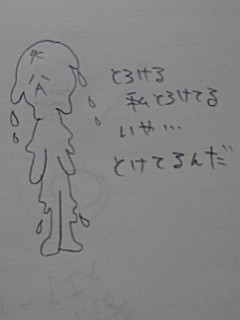 とろける
私とろけてる
いや…
とけてるんだ